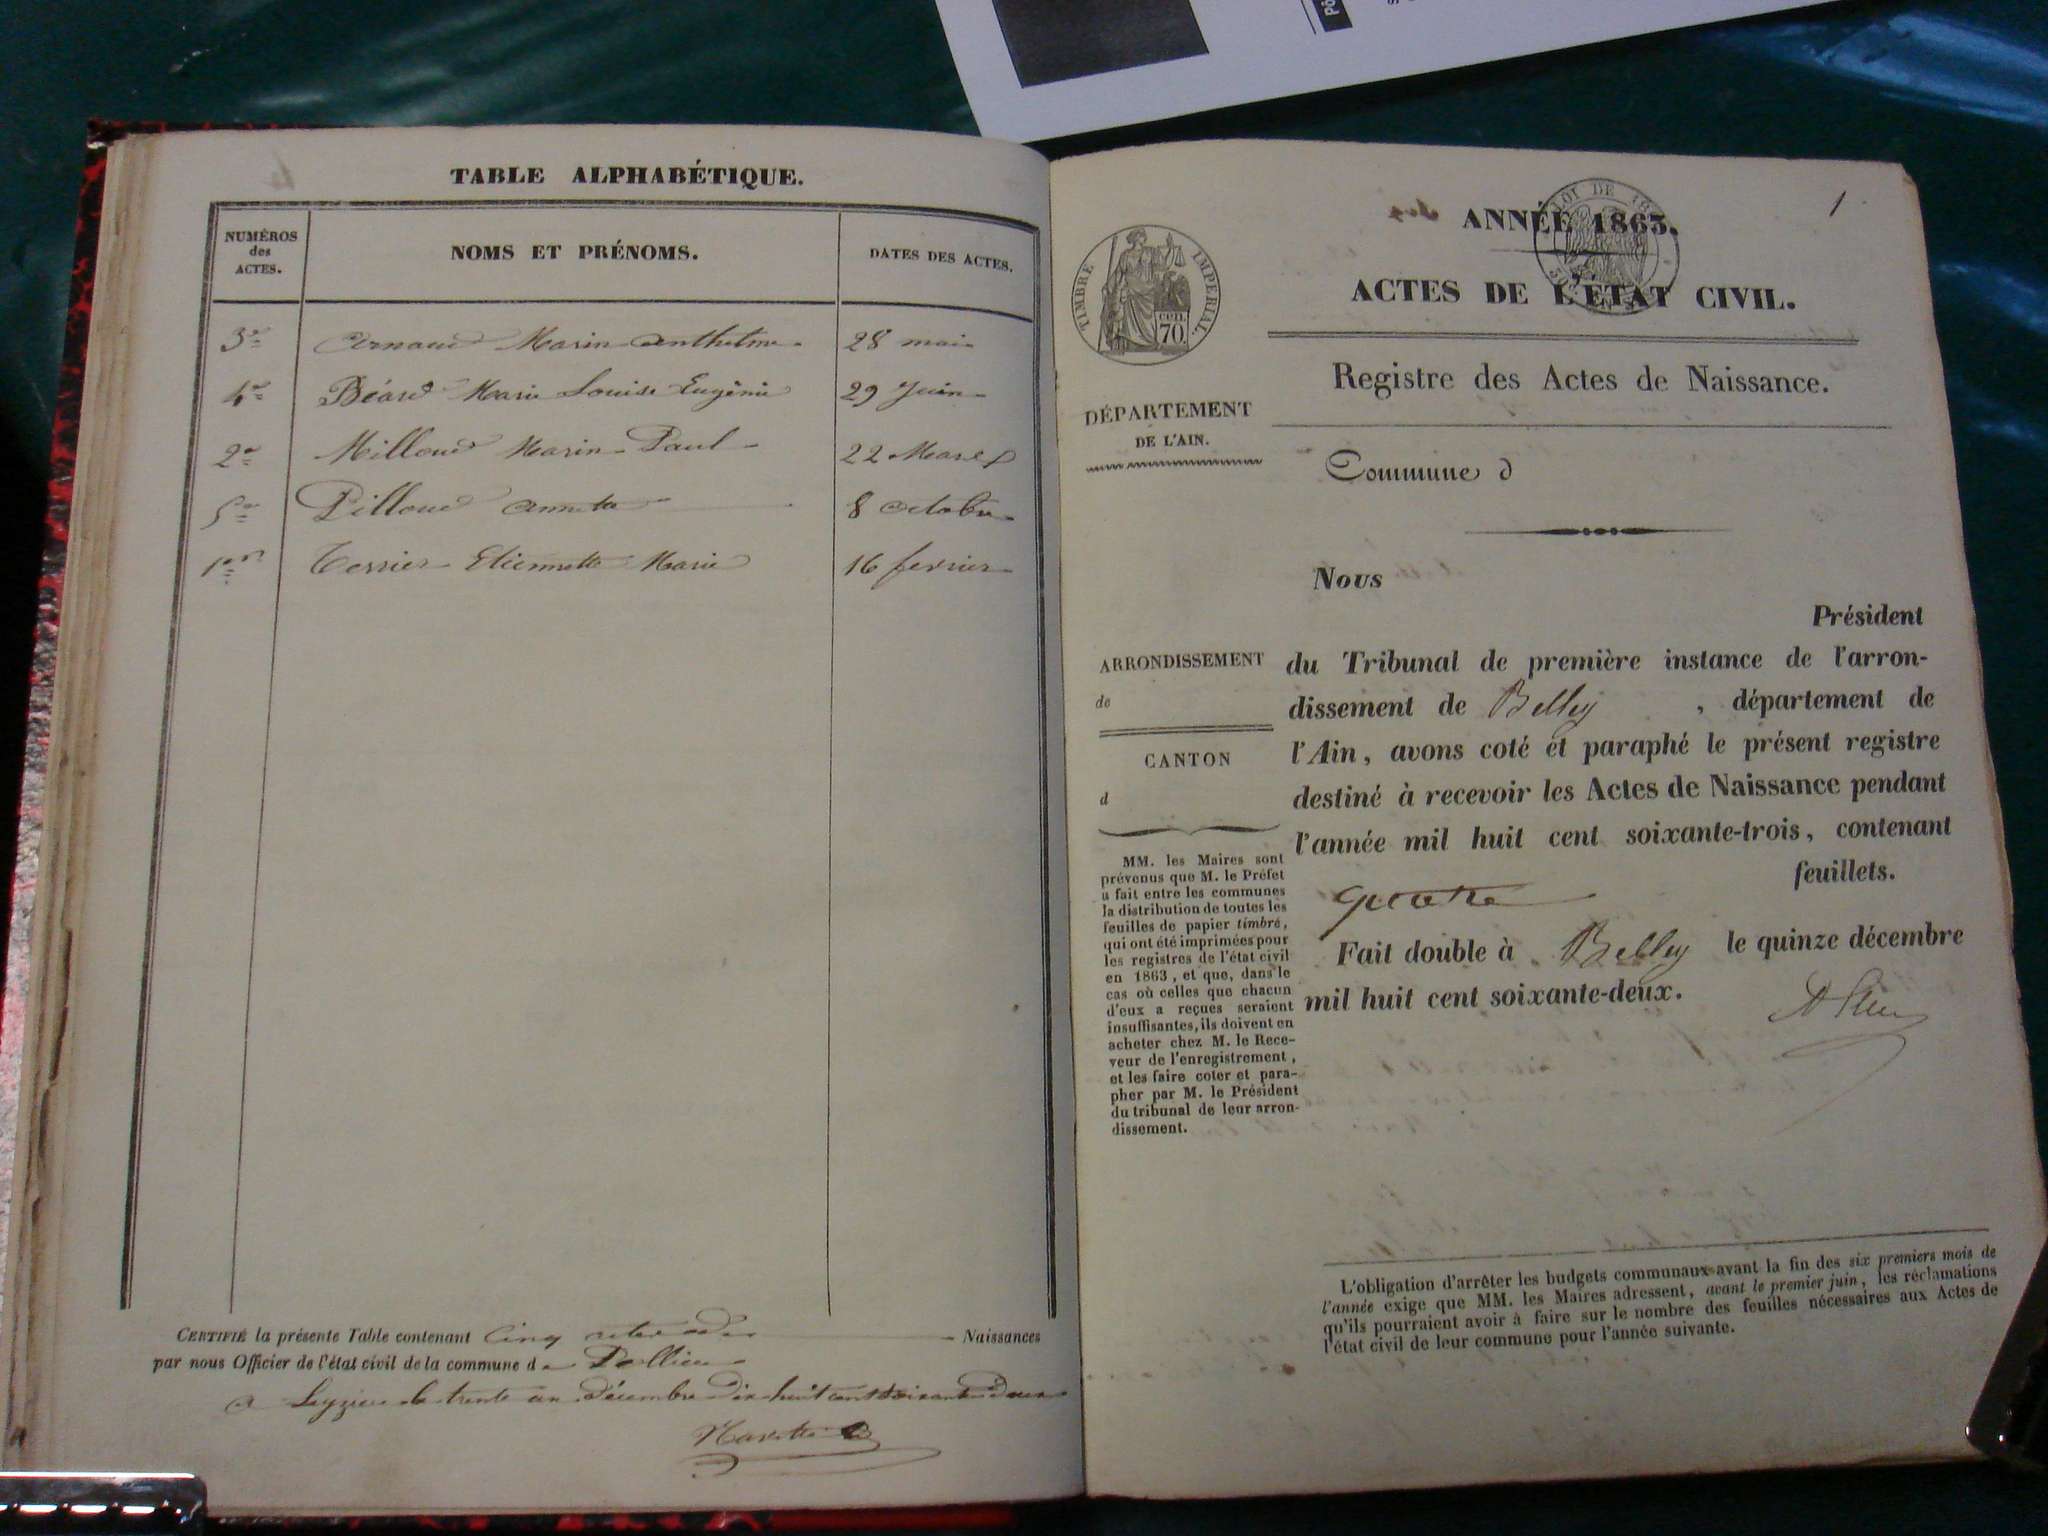 TABLE ALPHABÉTIQUE.
NUMÉROS
des
ACTES.
NOMS ET PRÉNOMS.
DATES DES ACTES.
3e Arnaud Marin Anthelme 28 mai
4e Béard Marie Louise Eugénie 29 Juin
2e Milloud Marin Paul 22 Mars
5e Pilloud Annette 8 octobre
1er Terrier Etiennette Marie 16 fevrier
CERTIFIÉ la présente Table contenant Cinq actes de Naissances
par nous Officier de l'état civil de la commune de Pollieu
a Leyzieu le trente un Décembre Dix huit cent soixante Deux
1
LOI DE
ANNÉE 1863.
ACTES DE L'ÉTAT CIVIL.
TIMBRE IMPÉRIAL.
cen.
70.
Registre des Actes de Naissance.
DÉPARTEMENT
DE L'AIN.
Commune d
Nous
Président
ARRONDISSEMENT
de
CANTON
d
du Tribunal de première instance de l'arron-
dissement de Belley , département de
l'Ain, avons coté et paraphé le présent registre
destiné à recevoir les Actes de Naissance pendant
l'année mil huit cent soixante-trois, contenant
quatre feuillets.
Fait double à Belley le quinze décembre
mil huit cent soixante-deux.
MM. les Maires sont
prévenus que M. le Préfet
a fait entre les communes
la distribution de toutes les
feuilles de papier timbré,
qui ont été imprimées pour
les registres de l'état civil
en 1863, et que, dans le
cas où celles que chacun
d'eux a reçues seraient
insuffisantes, ils doivent en
acheter chez M. le Rece-
veur de l'enregistrement,
et les faire coter et para-
pher par M. le Président
du tribunal de leur arron-
dissement.
L'obligation d'arrêter les budgets communaux avant la fin des six premiers mois de
l'année exige que MM. les Maires adressent, avant le premier juin, les réclamations
qu'ils pourraient avoir à faire sur le nombre des feuilles nécessaires aux Actes de
l'état civil de leur commune pour l'année suivante.